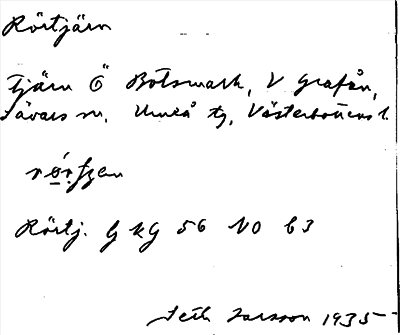 Rörtjärn
Tjärn Ö Botsmark, V Grafån,
Sävars sn, Umeå tg, Västerbottens l.
Rörtj. G kg 56 NO b3
Seth Larsson 1935